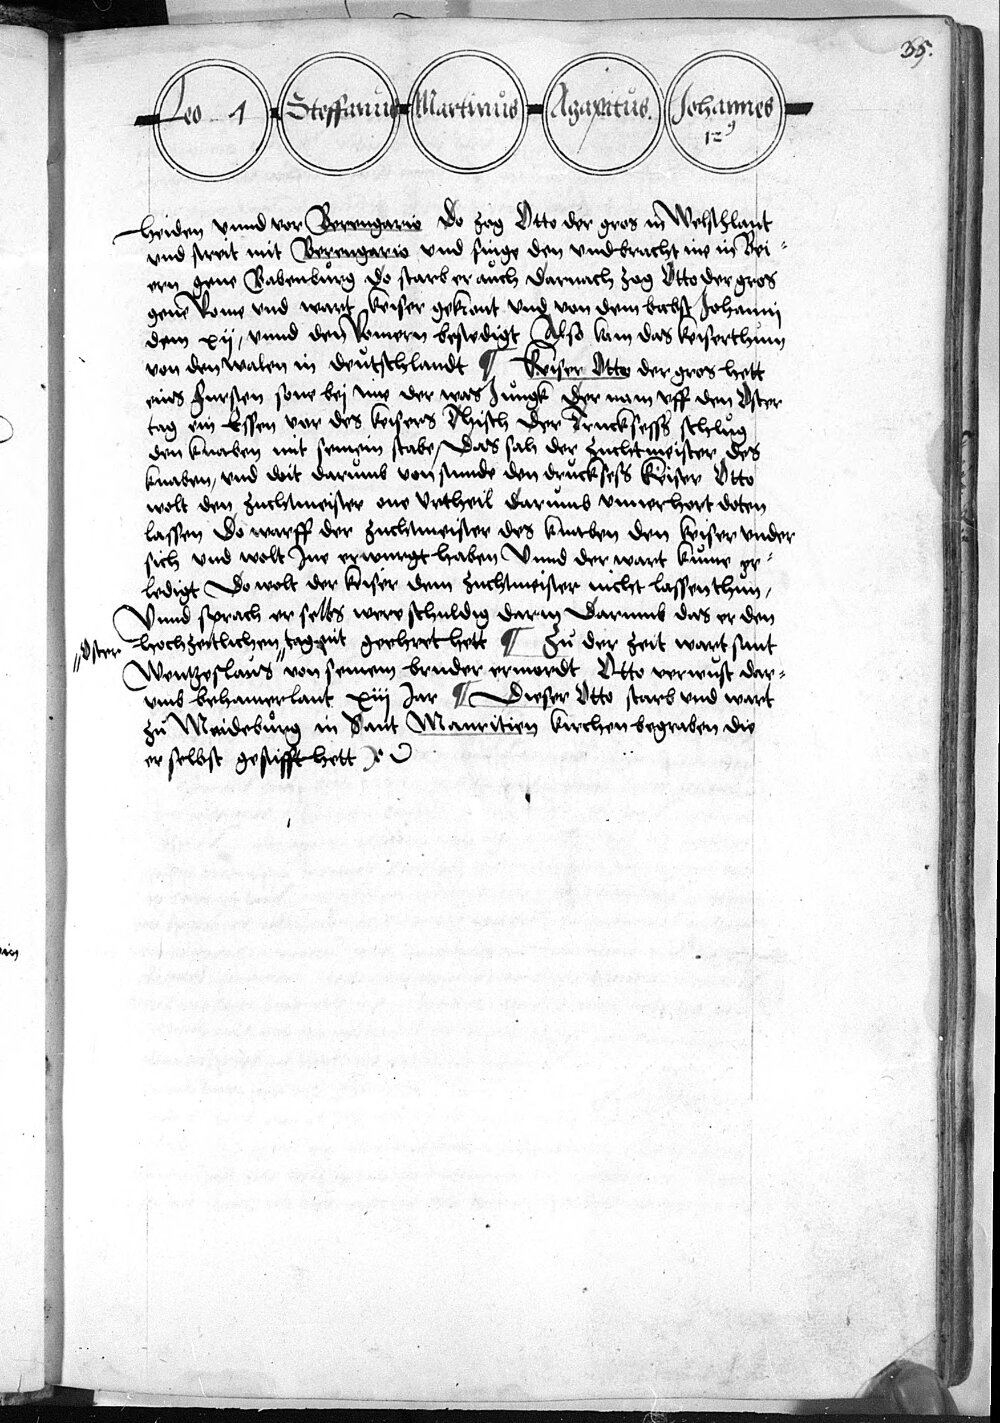 35.
Leo 1 Steffanus Martinus Agapitus. Johannes
12
heiden vnnd vor Berengario Do zog Otto der gros in Welschlant
vnd streit mit Berengario vnd finge den vnd bracht ine in Bei-
ern gene Babenburg Do starb er auch Darnach zog Otto der gros
gene Rome vnd wart keiser gekront vnd von dem babst Johanni
dem xij, vnnd den Romern bestedigt Also kam das keiserthum
von den walen in deutschlandt ¶ Keiser Otto der gros hett
eins Fursten sone bei ime der was Jungk Der nam vff den Oster
tag ein Essen vor des keisers Thisch Der Trucksess schlug
den knaben mit seinem stabe, Das sah der zuchtmeister des
knaben, vnd doit darumb von stunde den drucksess Keiser Otto
wolt den zuchtmeister one Vrtheil darumb vnuerhort doten
lassen Do warff der zuchtmeister des knaben den keiser vnder
sich vnd wolt Ine erwurgt haben Vnnd der wart kume er-
ledigt Do wolt der keiser dem zuchtmeister nicht lassen thun,
Vnnd sprach er selbs were schuldig darin Darumb das er den
"Oster hochzeitlichen "tag nit geehret hett ¶ Zu der zeit wart sant
Wentzeslaus von seinem bruder ermordt Otto verwust dar-
umb behamerlant xiij Jar ¶ Dieser Otto starb vnd wart
zu Meideburg in Sant Mauritien kirchen begraben die
er selbst gestifft hett